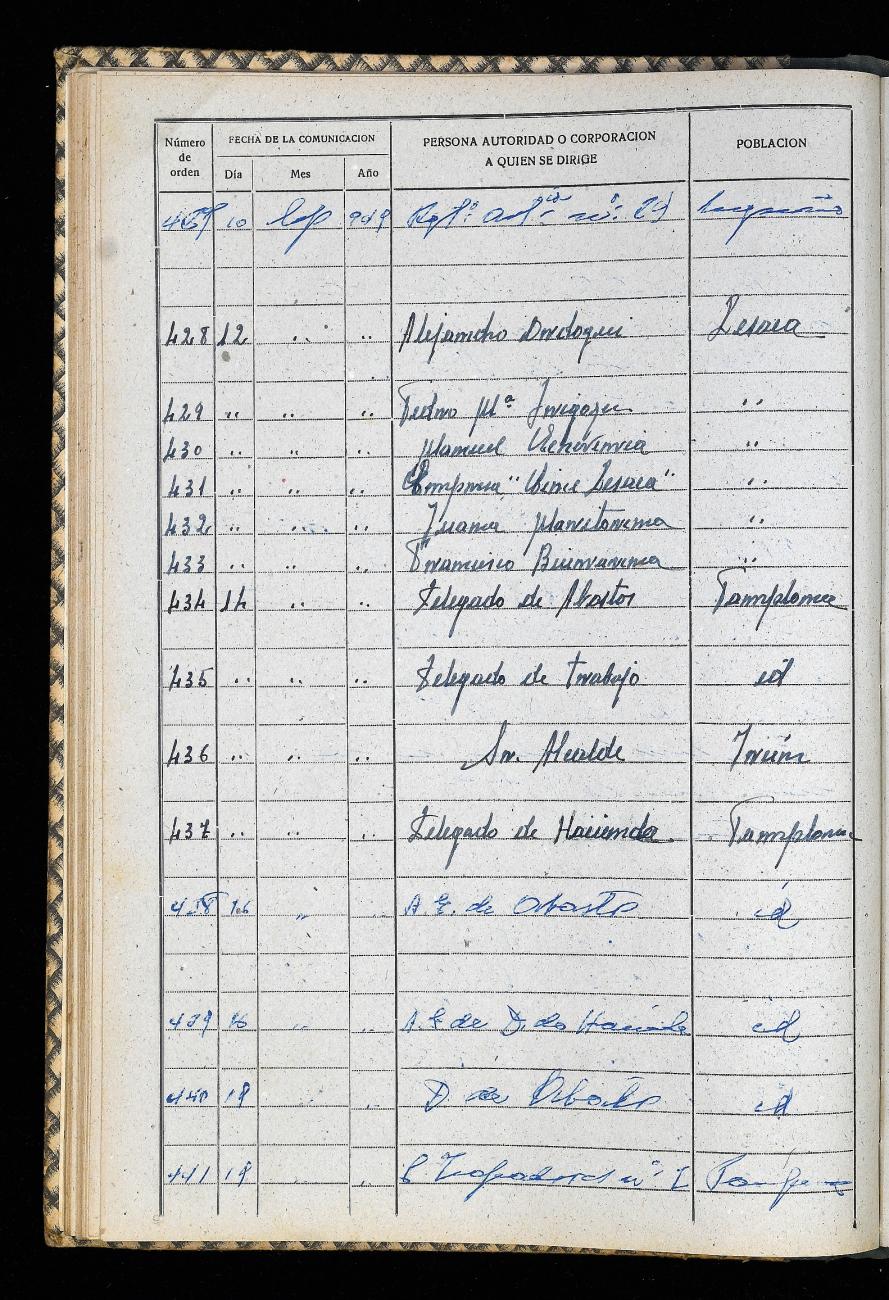 Número de orden FECHA DE LA COMUNICACION PERSONA AUTORIDAD O CORPORACION A QUIEN SE DIRIGE POBLACION
Día Mes Año
427 10 Sep 949 Rgtº. Artª. nº. 29
428 12 " " Alejandro Ordoqui Lesaca
429 " " " Pedro Mª Irigoyen "
430 " " " Manuel Echeverria "
431 " " " Empresa "Cine Lesaca" "
432 " " " Juana Marictorena "
433 " " " Francisco Bienvarena "
434 14 " " Delegado de Abastos Pamplona
435 " " " Delegado de trabajo id
436 " " " Sr. Alcalde Irún
437 " " " Delegado de Hacienda Pamplona
438 16 " " A. E. de Abastos id
439 16 " " A. E. de D. de Hacienda id
440 18 " D. de Abastos id
441 18 " nº 2 Pamplona